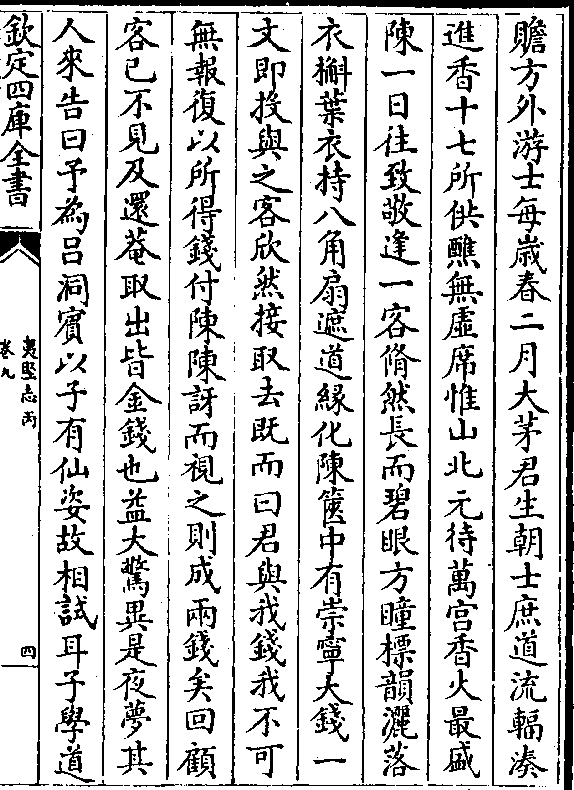 贍方外游士每歲春二月大茅君生朝士庶道流輻湊
進香十七所供醮無虛席惟山北元待萬宫香火最盛
陳一日往致敬逢一客脩然長而碧眼方瞳標韻灑落
衣槲葉衣持八角扇遮道緣化陳篋中有崇寧大錢一
文即投與之客欣然接取去既而曰君與我錢我不可
無報復以所得錢付陳陳訝而視之則成兩錢矣回顧
客已不見及還菴取出皆金錢也益大驚異是夜夢其
人來告曰予為吕洞賓以子有仙姿故相試耳子學道
欽定四庫全書
夷堅志丙
卷九
四